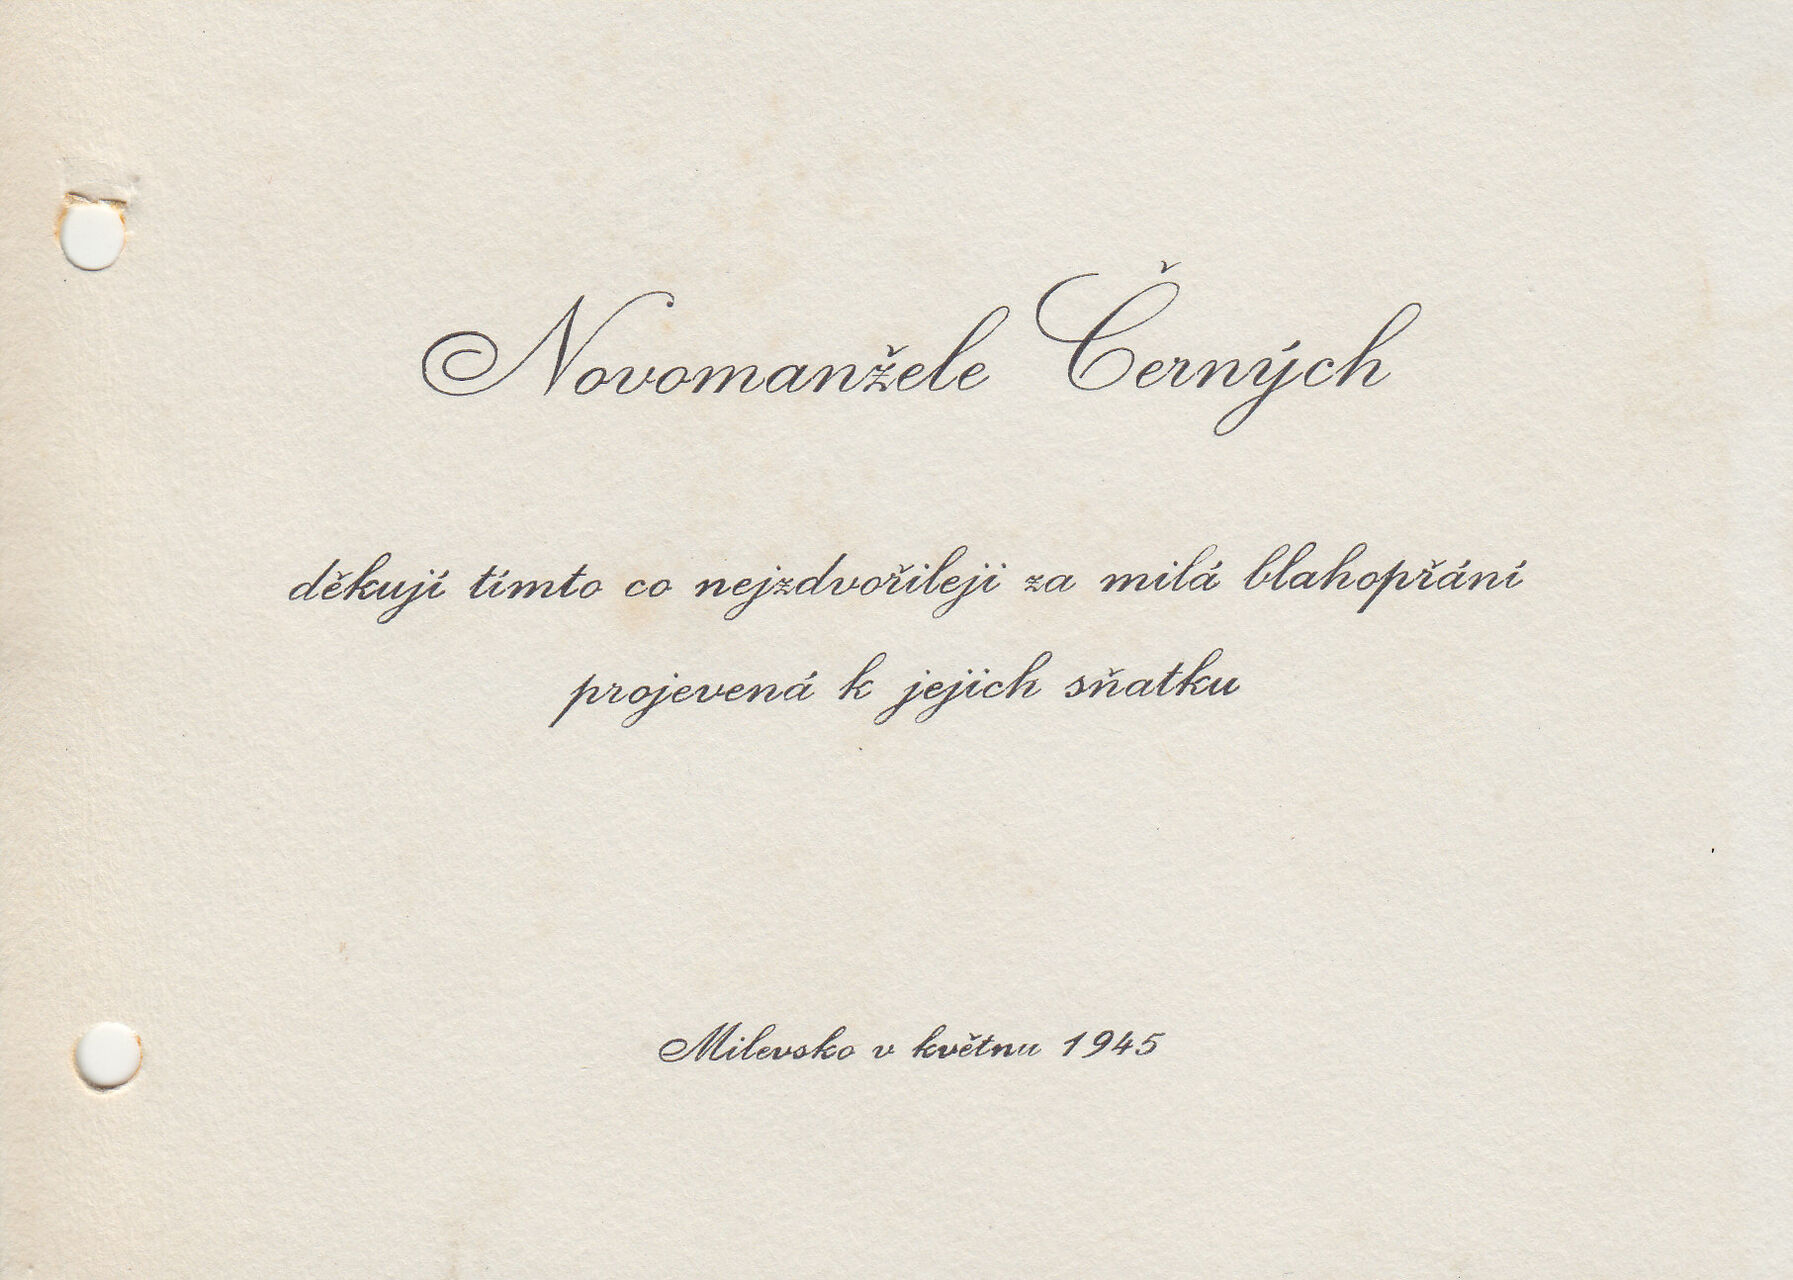 Novomanžele Černých
děkují tímto co nejzdvořileji za milá blahopřání
projevená k jejich sňatku
Milevsko v květnu 1945